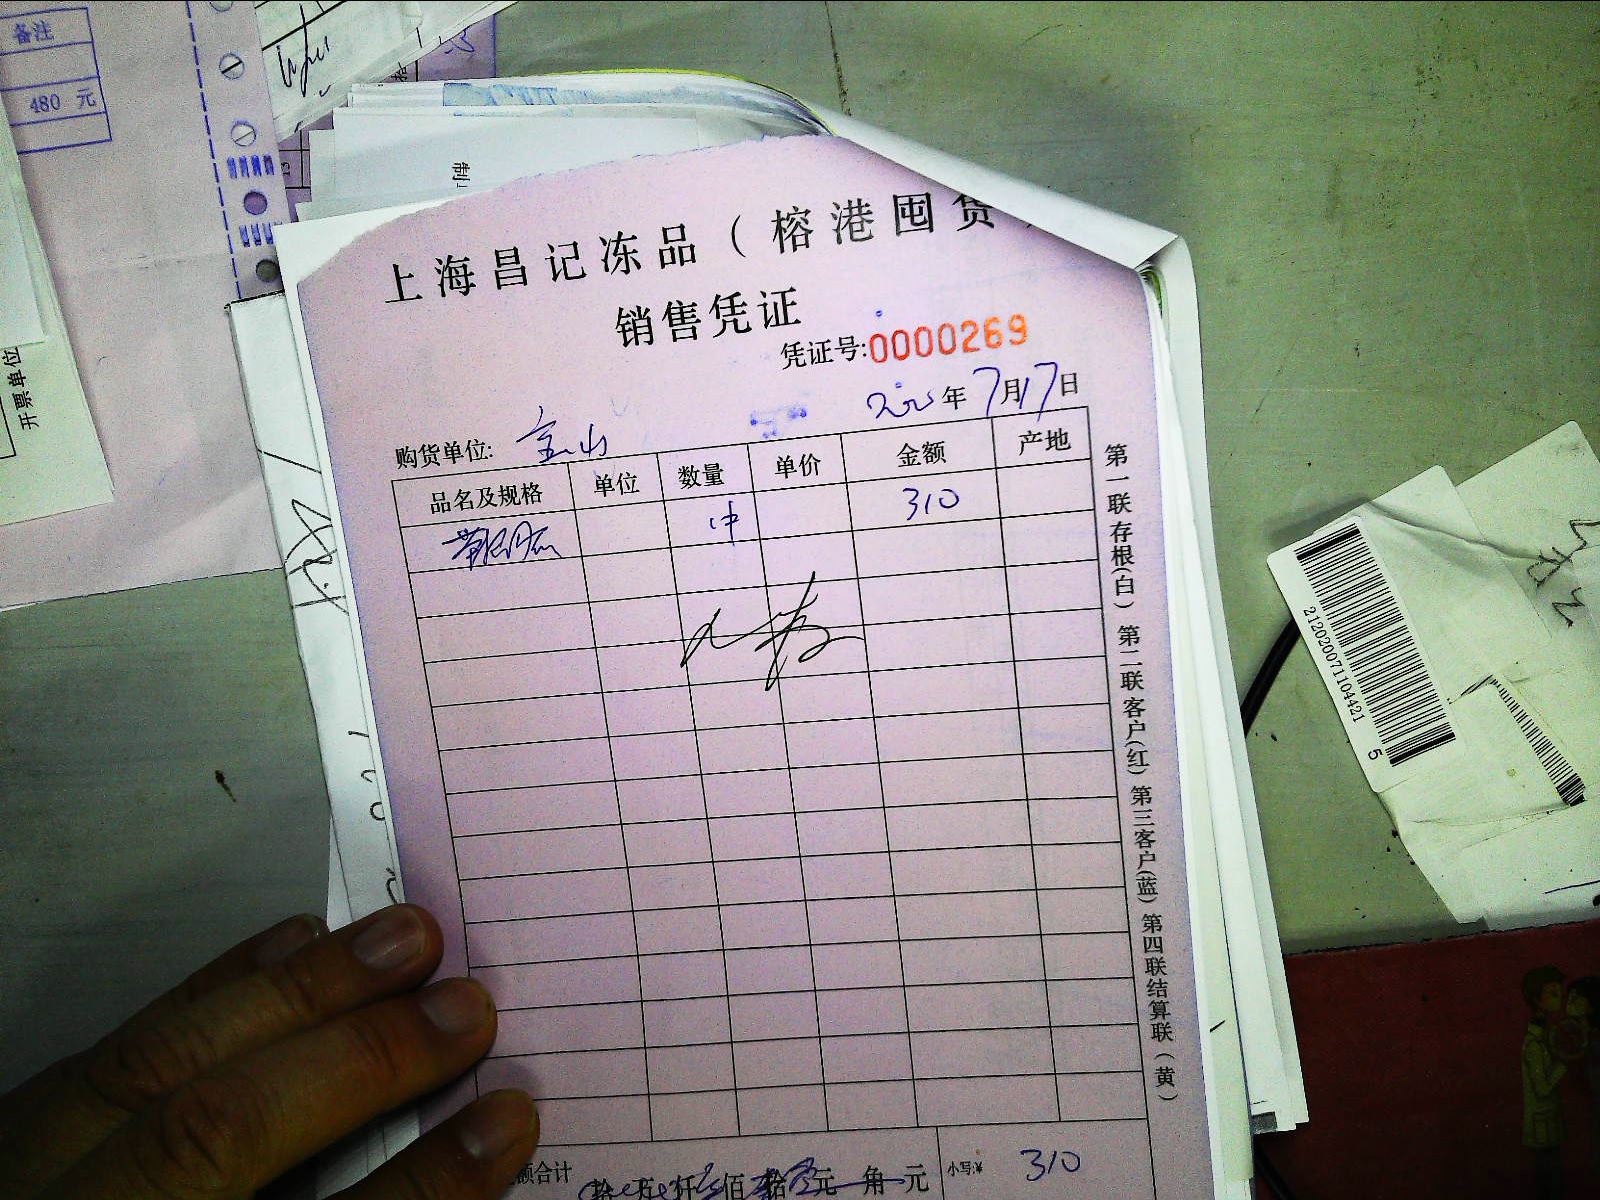 备注
480 元
开票单位
制
上海昌记冻品（榕港囤货
销售凭证
凭证号:0000269
年7月17日
购货单位: 金山
品名及规格 单位 数量 单价 金额 产地
1件 310
第一联存根(白) 第二联客户(红) 第三客户(蓝) 第四联结算联(黄)
额合计 拾 万 仟 佰 拾 元 角 元 小写:¥ 310
21202007110442​1 5